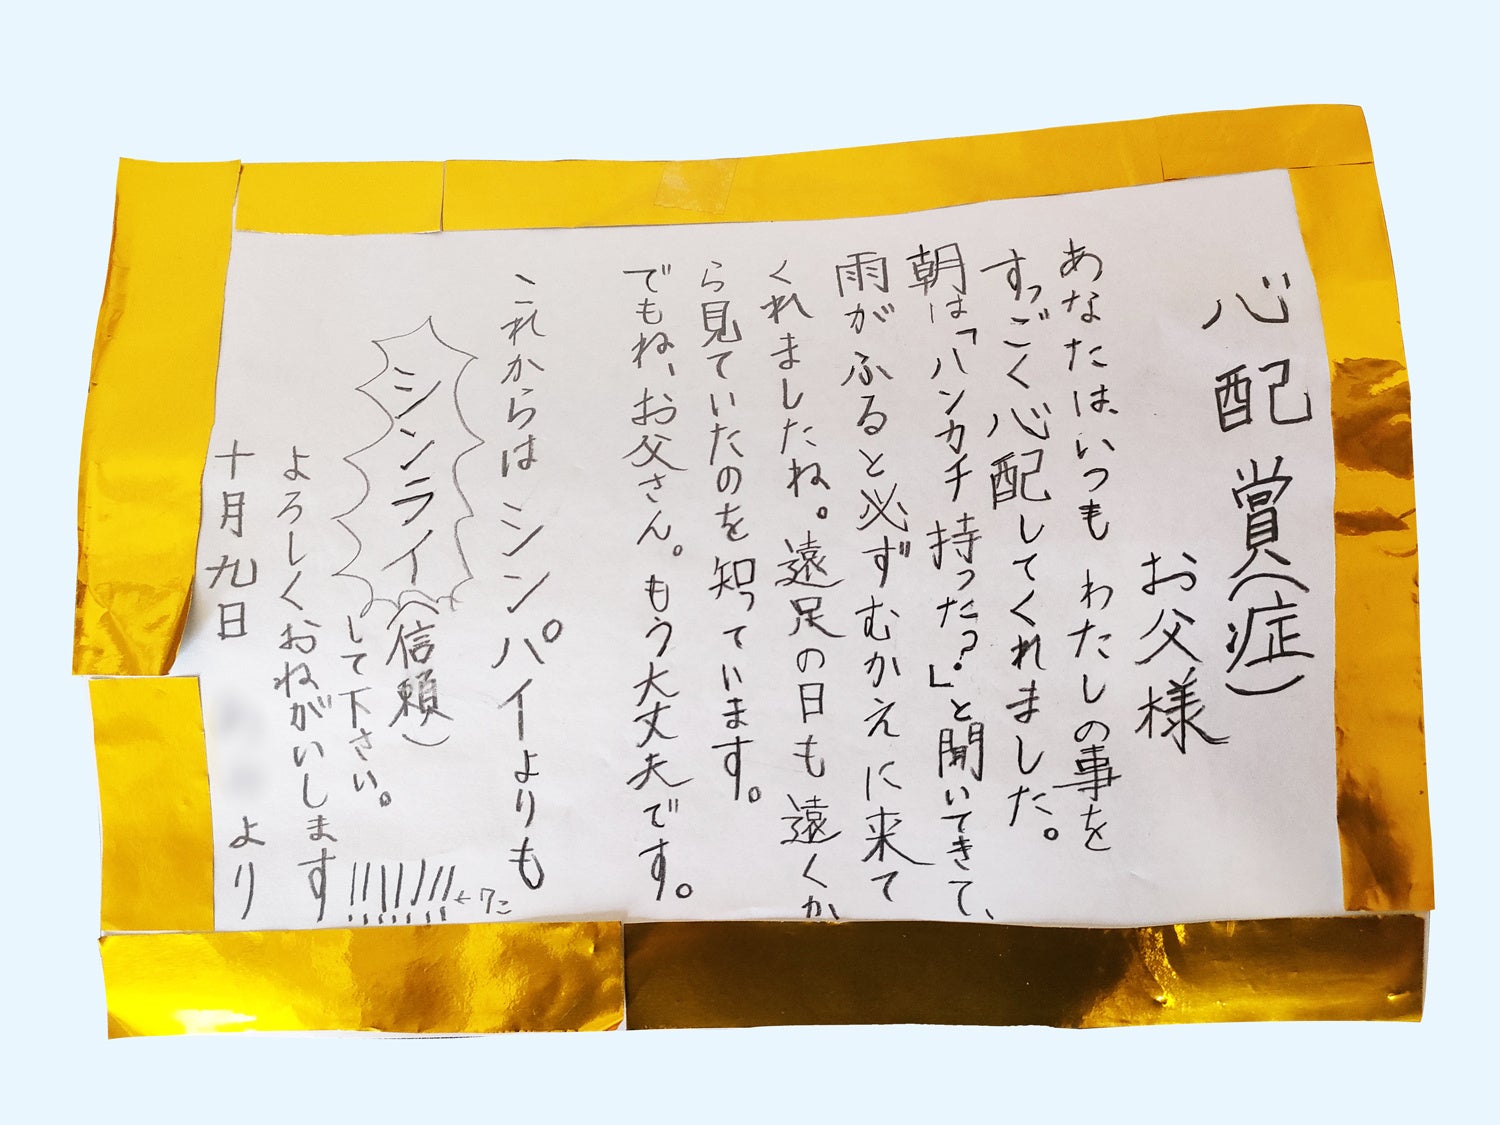 心配賞(症)
お父様
あなたは、いつもわたしの事を
すっごく心配してくれました。
朝は「ハンカチ持った?」と聞いてきて、
雨がふると必ずむかえに来て
くれましたね。遠足の日も遠くか
ら見ていたのを知っています。
でもね、お父さん。もう大丈夫です。
これからはシンパイよりも
シンライ(信頼)
して下さい。
よろしくおねがいします
!!!!!!!←7こ
十月九日 より